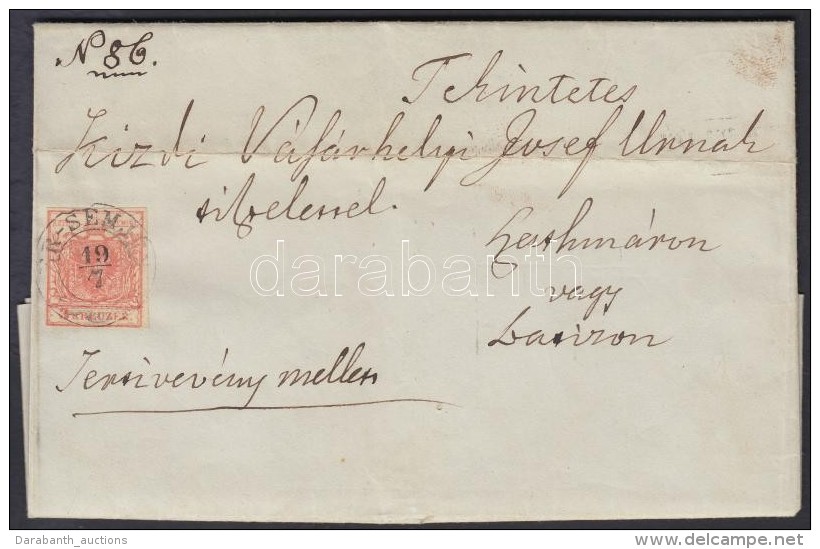 N 86.
Tekintetes
Kizdi Vásárhelyi Josef Urnak
tiszteletessel.
Keshmáron
vagy
Laсizon
Tertivevény mellett
R-SEM
19
7
KREUZER
darabanth
Darabanth_auctions
www.delcampe.net